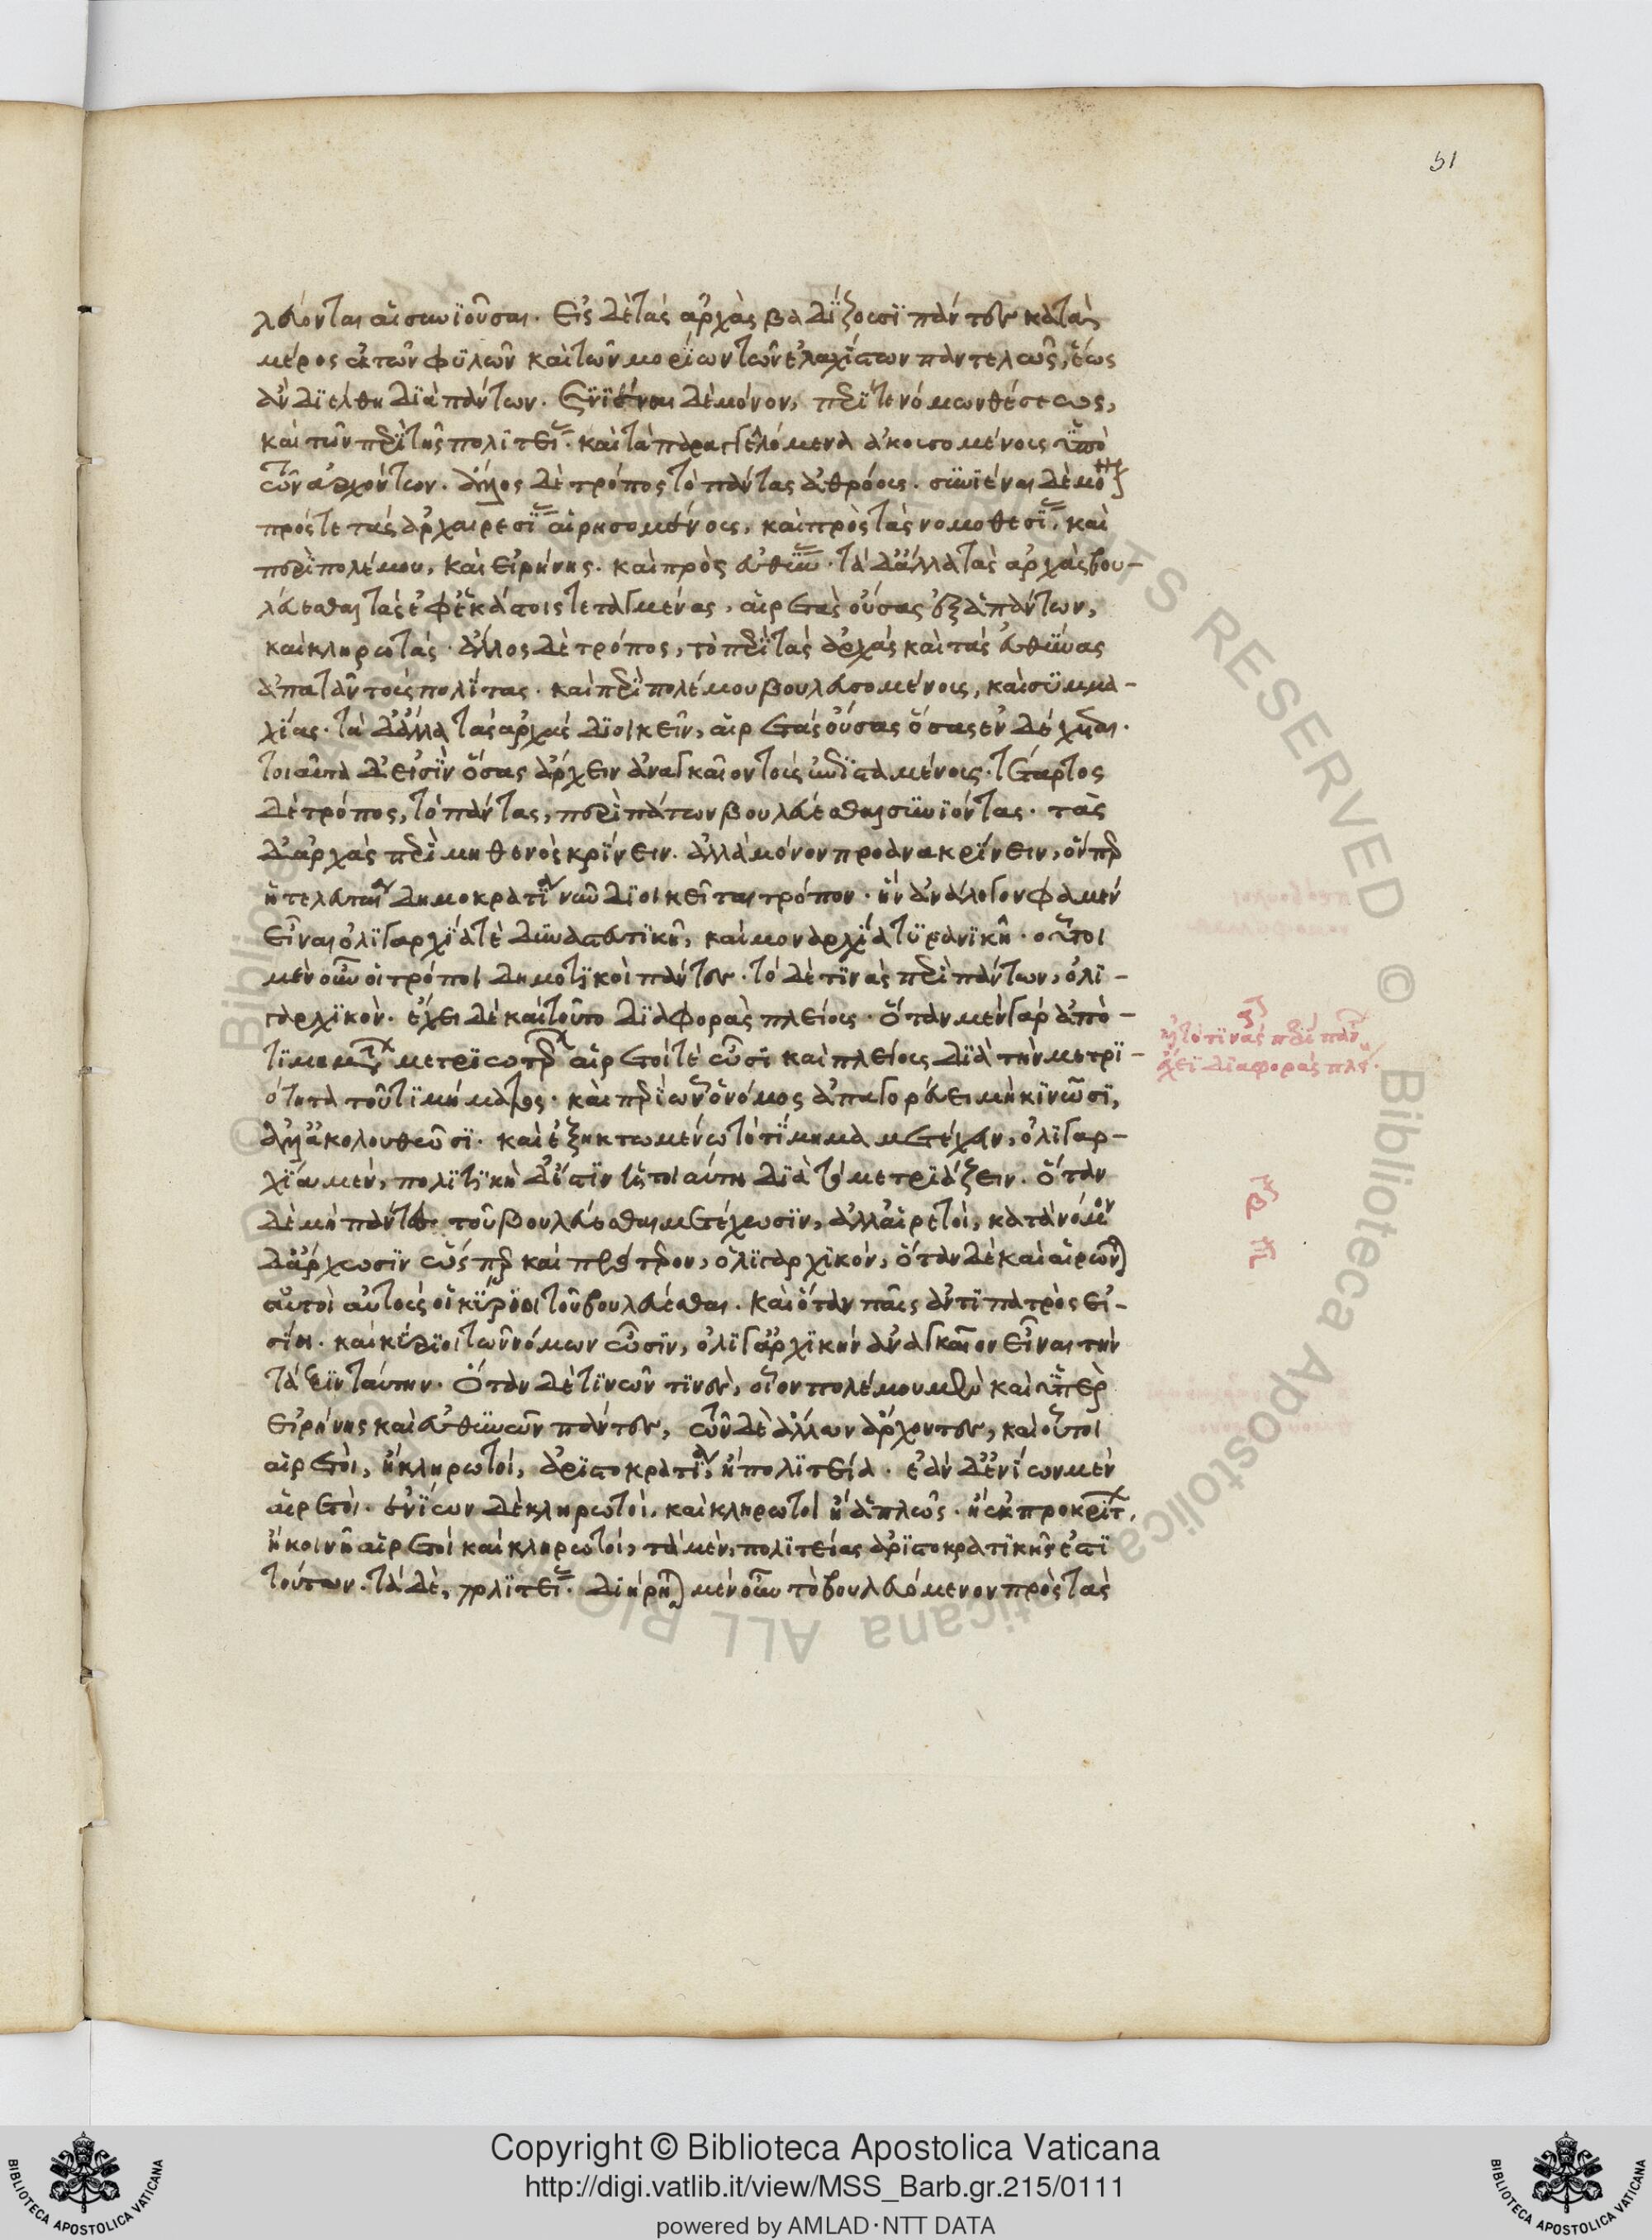 51
λεύονται αἱ συνιοῦσαι. Εἰς δὲ τὰς ἀρχὰς βαδίζουσι πάντες κατὰ
μέρος ἐκ τῶν φυλῶν καὶ τῶν μορίων τῶν ἐλαχίστων παντελῶς, ἕως
ἂν διέλθη διὰ πάντων. Συνιέναι δὲ μόνον, περί τε νόμων θέσεως,
καὶ τῶν περὶ τῆς πολιτείας. καὶ τὰ παραγγελόμενα ἀκουσομένους ὑπὸ
τῶν ἀρχόντων. ἄλλος δὲ τρόπος τὸ πάντας ἀθρόους. συνιέναι δὲ μόνον
πρός τε τὰς ἀρχαιρεσίας αἱρησομένους, καὶ πρὸς τὰς νομοθεσίας, καὶ
περὶ πολέμου, καὶ εἰρήνης. καὶ πρὸς εὐθύνας. τὰ δ' ἄλλα τὰς ἀρχὰς βου-
λεύεσθαι τὰς ἐφ' ἑκάστοις τεταγμένας, αἱρετὰς οὔσας ἐξ ἁπάντων,
καὶ κληρωτάς. ἄλλος δὲ τρόπος, τὸ περὶ τὰς ἀρχὰς καὶ τὰς εὐθύνας
ἀπαντᾶν τοὺς πολίτας. καὶ περὶ πολέμου βουλευσομένους, καὶ συμμα-
χίας. τὰ δ' ἄλλα τὰς ἀρχὰς διοικεῖν, αἱρετὰς οὔσας ὅσας ἐνδέχεται.
τοιαῦται δ' εἰσὶν ὅσας ἄρχειν ἀναγκαῖον τοὺς ἐπισταμένους. τέταρτος
δὲ τρόπος, τὸ πάντας, περὶ πάντων βουλεύεσθαι συνιόντας. τὰς
δ' ἀρχὰς περὶ μηθενὸς κρίνειν. ἀλλὰ μόνον προανακρίνειν, ὅνπερ
ἡ τελευταία δημοκρατία νῦν διοικεῖται τρόπον. ἣν ἀνάλογον φαμὲν
εἶναι ὀλιγαρχία τε δυναστικῆ, καὶ μοναρχία τυραννικῆ. οὗτοι
μὲν οὖν οἱ τρόποι δημοτικοὶ πάντες. τὸ δὲ τινὰς περὶ πάντων, ὀλι-
γαρχικόν. ἔχει δὲ καὶ τοῦτο διαφορὰς πλείους. ὅταν μὲν γὰρ ἀπὸ
τιμημάτων μετριωτέρων αἱρετοί τε ὦσι καὶ πλείους διὰ τὴν μετρι-
ότητα τοῦ τιμήματος. καὶ περὶ ὧν ὁ νόμος ἀπαγορεύει μὴ κινῶσι,
ἀλλ' ἀκολουθῶσι. καὶ ἐξῆ κτωμένω τὸ τίμημα μετέχειν, ὀλιγαρ-
χία μέν, πολιτικὴ δ' ἐστὶν ἡ τοιαύτη διὰ τὸ μετριάζειν. ὅταν
δὲ μὴ πάντες τοῦ βουλεύεσθαι μετέχωσιν, ἀλλ' αἱρετοί, κατὰ νόμον
δ' ἄρχωσιν ὥσπερ καὶ πρότερον, ὀλιγαρχικόν, ὅταν δὲ καὶ αἱρῶνται
αὐτοὶ αὑτοὺς οἱ κύριοι τοῦ βουλεύεσθαι. καὶ ὅταν παῖς ἀντὶ πατρὸς εἰ-
σίηι. καὶ κύριοι τῶν νόμων ὦσιν, ὀλιγαρχικὴν ἀναγκαῖον εἶναι τὴν
τάξιν ταύτην. Ὅταν δὲ τινῶν τινὲς, οἷον πολέμου μὲν καὶ ὑπὲρ
εἰρήνης καὶ εὐθυνῶν πάντες, τῶν δὲ ἄλλων ἄρχοντες, καὶ οὗτοι
αἱρετοὶ, ἢ κληρωτοί, ἀριστοκρατία, ἢ πολιτεία. ἐὰν δ' ἐνίων μὲν
αἱρετοὶ. ἐνίων δὲ κληρωτοὶ. καὶ κληρωτοὶ ἢ ἁπλῶς. ἢ ἐκ προκρίτων,
ἢ κοινῆ αἱρετοὶ καὶ κληρωτοὶ, τὰ μὲν, πολιτείας ἀριστοκρατικῆς ἐστι
τούτων. τὰ δὲ, πολιτείας. διήρηται μὲν οὖν τὸ βουλευόμενον πρὸς τὰς
ὅτι τὸ τινὰς περὶ πάντων
ἔχει διαφορὰς πλεί.
Copyright © Biblioteca Apostolica Vaticana
http://digi.vatlib.it/view/MSS_Barb.gr.215/0111
powered by AMLAD·NTT DATA
BIBLIOTECA APOSTOLICA VATICANA
BIBLIOTECA APOSTOLICA VATICANA